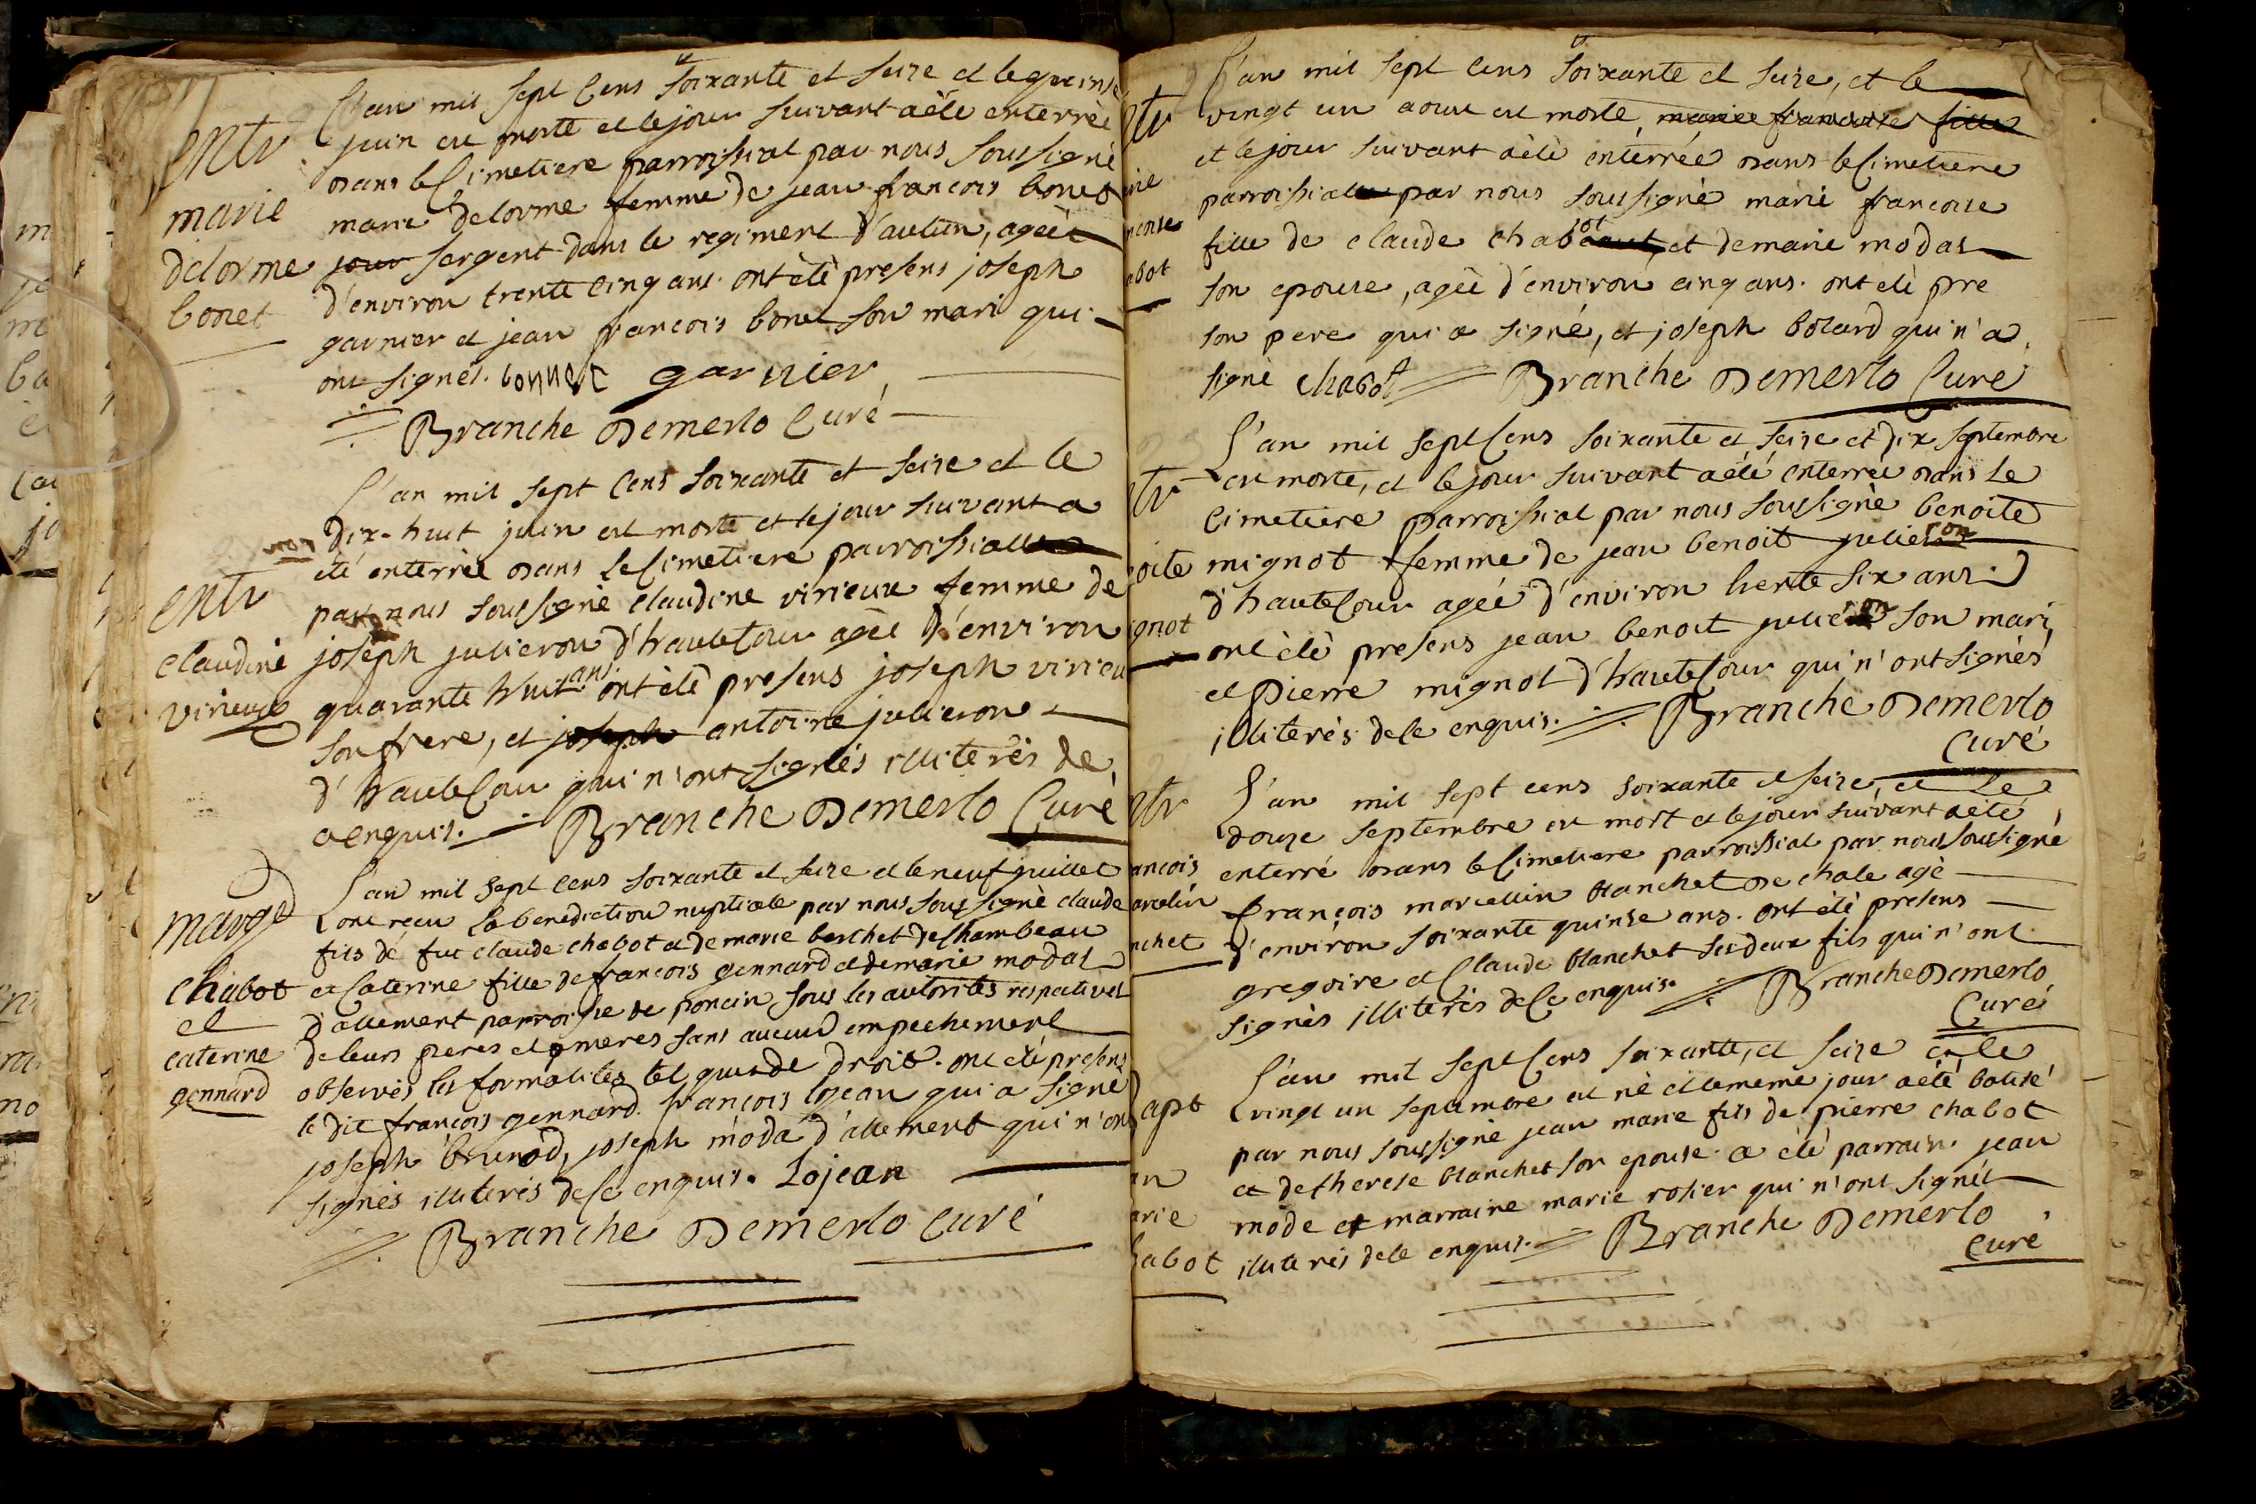 entr
marie
delorme
bonet
L'an mil sept cens soixante et seize et le quinse
juin est morte et le jour suivant a été enterrèe
dans le Cimetiere parroissial par nous soussigné
marie delorme femme de jean francois bonet
jour sergent dans le regiment d'autun, agèe
d'environ trente cinq ans. ont èté presens joseph
garnier et jean francois bonet son mari qui
ont signés. bonnet garnier
Branche Demerlo Curé
entr
claudine
virieux
L'an mil sept cens soixante et seize et le
dix-huit juin est morte et le jour suivant a
été enterrèe dans le Cimetiere parroissial
par nous soussigné claudine virieux femme de
joseph julieron d'hauteCour agèe d'environ
quarante huit ans. ont èté presens joseph virieu
son frere, et joseph antoine julieron
d'hauteCour qui n'ont signés illiterès de
ce enquis. Branche Demerlo Curé
marge
chabot
et
caterine
gennard
L'an mil sept cens soixante et seize et le neuf juillet
ont recu la benediction nuptiale par nous soussigné claude
fils de fut claude chabot et de marie berchet de Chambeau
et Caterine fille de francois gennard et de marie modas
d'allement parroisse de poncin sous les autorités respectives
de leurs peres et meres sans aucun empechement
observés les formalites tel que de droit. ont èté presens
le dit francois gennard. francois lojean qui a signé
joseph brunod, joseph moda d'allement qui n'ont
signès illiterès de ce enquis. Lojean
Branche Demerlo Curé
ntr
rie
ncoise
abot
L'an mil sept cens soixante et seize, et le
vingt un aoust est morte, marie francoise fille
et le jour suivant a èté enterrée dans le Cimetiere
parroissial par nous soussigné marie francoise
fille de claude chabot et de marie modas
son epouse, agèe d'environ cinq ans. ont eté pre
son pere qui a signé, et joseph bolard qui n'a
signé chabot Branche Demerlo Curé
ntr
oite
ignot
L'an mil sept Cens soixante et seize et dix septembre
est morte, et le jour suivant a èté enterrèe dans le
Cimetiere parroissial par nous soussigné benoite
mignot femme de jean benoit julieron
d'hauteCour agée d'environ trente six ans.
ont èté presens jean benoit julieron son mari
et pierre mignot d'hauteCour qui n'ont signés
illiterés de ce enquis. Branche Demerlo
Curé
ntr
ancois
arcelin
nchet
L'an mil sept cens soixante et seize, et le
douze septembre est mort et le jour suivant a été
enterré dans le Cimetiere parroissial par nous soussigné
françois marcellin blanchet de chale agé
d'environ soixante quinse ans. ont été presens
gregoire et Claude blanchet ses deux fils qui n'ont
signès illiterés de Ce enquis. Branche Demerlo
Curé
apt
an
arie
habot
L'an mil sept Cens soixante, et seize et le
vingt un septembre est né et le meme jour a été batisé
par nous soussigné jean marie fils de pierre chabot
et de therese blanchet son epouse. a èté parrain jean
mode et marraine marie rosier qui n'ont signés
illiterés de ce enquis. Branche Demerlo
Curé